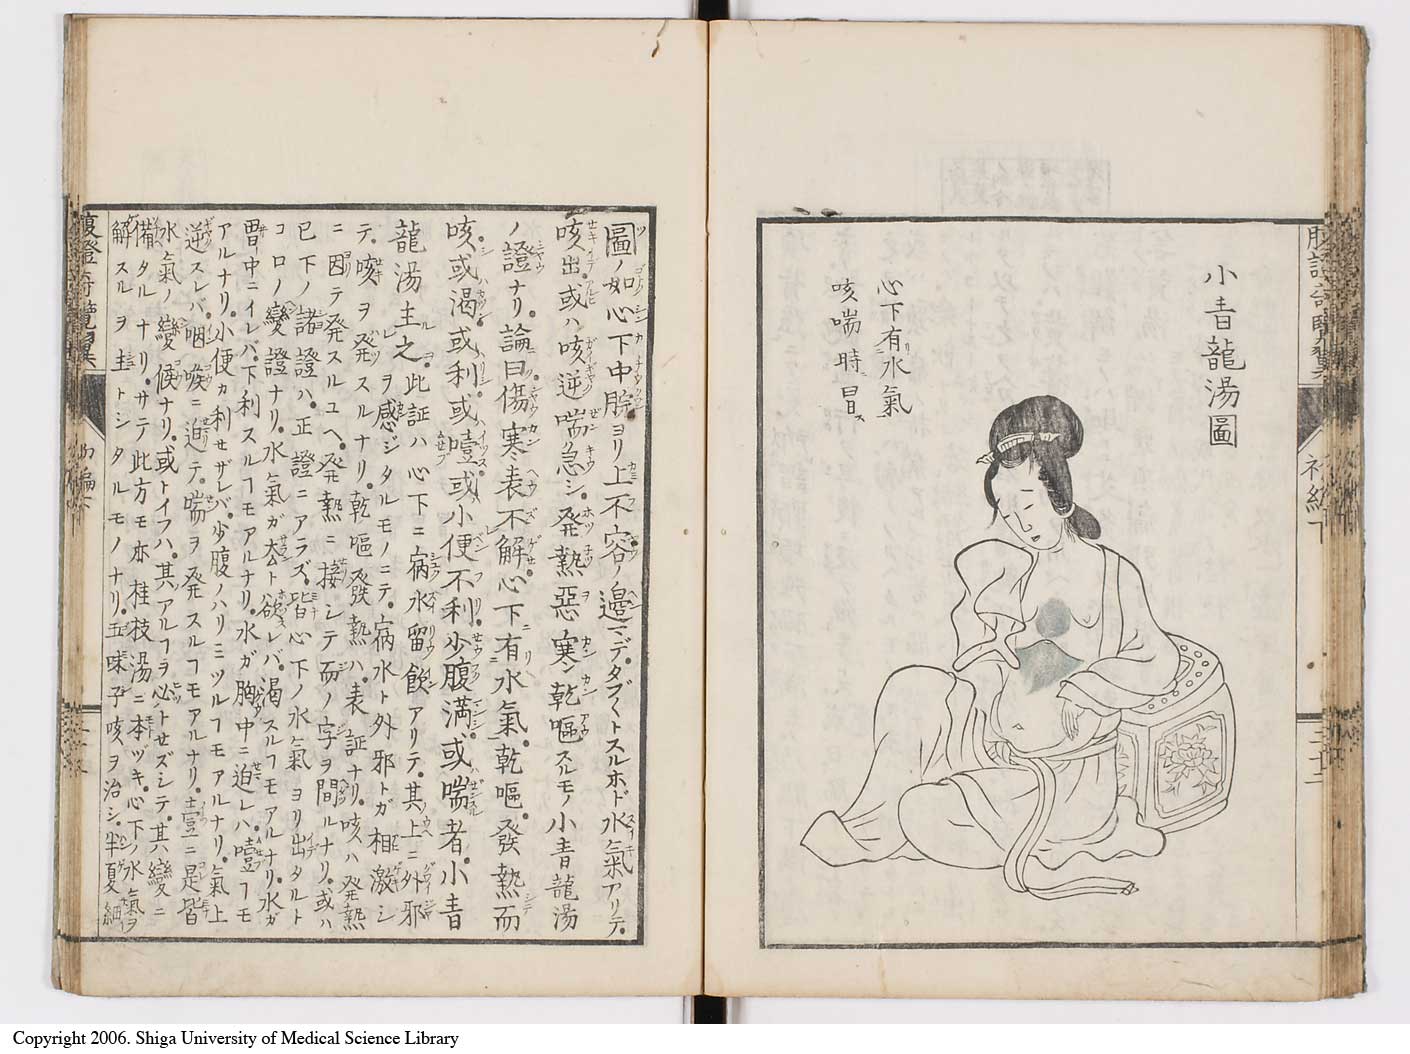 小青龍湯圖
心下有水氣
咳喘時冒ス
圖ノ如心下中脘ヨリ上不容ノ邉マデ。タブ〱トスルホド水氣アリテ。
咳出或ハ咳逆喘急シ。発熱惡寒乾嘔スルモノ小青龍湯
ノ證ナリ。論曰傷寒表不解心下有水氣。乾嘔。發熱而
咳或渴或利或噎或小便不利少腹満或喘者。小青
龍湯主之。此証ハ心下ニ病水留飲アリテ。其上ニ外邪
ヲ感ジタルモノニテ。病水ト外邪トガ相激シ
テ咳ヲ発スルナリ。乾嘔發熱ハ。表証ナリ。咳ハ發熱
ニ因テ発スルユヘ。発熱ニ接シテ而ノ字ヲ間ルナリ。或ハ
已下ノ諸證ハ。正證ニアラズ。皆心下ノ水氣ヨリ出タルト
コロノ變證ナリ。水氣ガ去ト欲レバ。渴スルヿモアルナリ。水ガ
胃中ニイレバ。下利スルヿモアルナリ。水ガ胸中ニ迫レハ。噎フヿモ
アルナリ。小便カ利セザレバ。少腹ノハリミツルフモアルナリ。氣上
逆スレバ。咽喉ニ迫テ。喘ヲ発スルヿモアルナリ。壹ニ是皆
水氣ノ變候ナリ。或トイフハ。其アルフヲ必トセズシテ。其變ニ
備タルナリ。サテ此方モ亦桂枝湯ニ本ヅキ。心下ノ水氣ヲ
解スルヲ主トシタルモノナリ。五味子咳ヲ治シ。半夏細
腹證奇覽翼
初編下